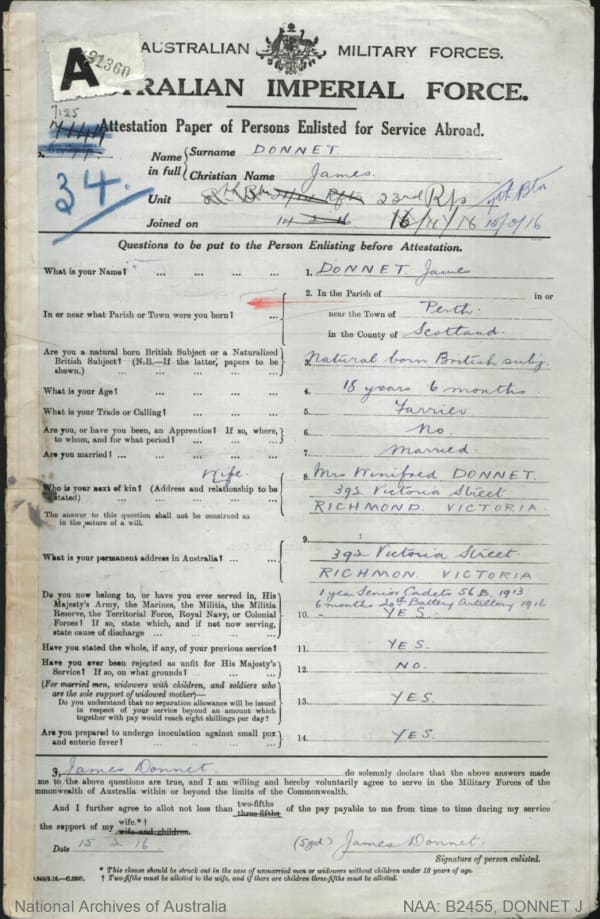 A 21360
AUSTRALIAN MILITARY FORCES.
AUSTRALIAN IMPERIAL FORCE.
7125
Attestation Paper of Persons Enlisted for Service Abroad.
34.
Name in full Surname DONNET.
Christian Name James.
Unit 23rd Rfs
Joined on 14 2 16 16/11/16
Questions to be put to the Person Enlisting before Attestation.
What is your Name? ... ... ... ... 1. DONNET James
In or near what Parish or Town were you born? ... 2. In the Parish of in or
near the Town of Perth.
in the County of Scotland.
Are you a natural born British Subject or a Naturalized British Subject? (N.B.—If the latter, papers to be shown.) ... ... 3. Natural born British subj.
What is your Age? ... ... ... ... 4. 18 years 6 months.
What is your Trade or Calling? ... ... ... 5. Farrier
Are you, or have you been, an Apprentice? If so, where, to whom, and for what period? ... ... ... 6. No.
Are you married? ... ... ... ... 7. Married.
Wife.
Who is your next of kin? (Address and relationship to be stated) ... ... ... ... 8. Mrs Winifred DONNET.
392 Victoria Street
RICHMOND VICTORIA
The answer to this question shall not be construed as in the nature of a will.
What is your permanent address in Australia? ... ... 9. 392 Victoria Street.
RICHMON. VICTORIA
Do you now belong to, or have you ever served in, His Majesty's Army, the Marines, the Militia, the Militia Reserve, the Territorial Force, Royal Navy, or Colonial Forces? If so, state which, and if not now serving, state cause of discharge ... ... ... 10. 1 year Senior Cadets 56 B. 1913
6 months 20th Battery Artillery 1916
- YES. -
Have you stated the whole, if any, of your previous service? 11. YES.
Have you ever been rejected as unfit for His Majesty's Service? If so, on what grounds? ... ... ... 12. NO.
(For married men, widowers with children, and soldiers who are the sole support of widowed mother)—
Do you understand that no separation allowance will be issued in respect of your service beyond an amount which together with pay would reach eight shillings per day? 13. YES.
Are you prepared to undergo inoculation against small pox and enteric fever? ... ... ... ... 14. YES.
I, James Donnet do solemnly declare that the above answers made
me to the above questions are true, and I am willing and hereby voluntarily agree to serve in the Military Forces of the
mmonwealth of Australia within or beyond the limits of the Commonwealth.
And I further agree to allot not less than two-fifths three-fifths of the pay payable to me from time to time during my service
the support of my wife.*† wife and children.
Date 15 2 16 (Sgd) James Donnet.
Signature of person enlisted.
* This clause should be struck out in the case of unmarried men or widowers without children under 18 years of age.
† Two-fifths must be allotted to the wife, and if there are children three-fifths must be allotted.
National Archives of Australia NAA: B2455, DONNET J